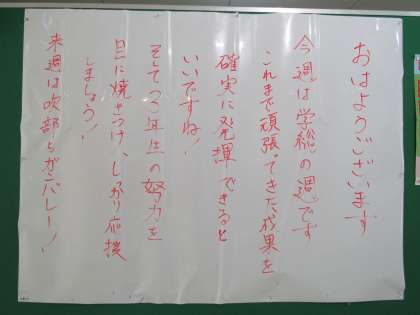 おはようございます
今週は学総の週です
これまで頑張ってきた成果を
確実に発揮できると
いいですね!
そして1,2年生の努力を
目に焼きつけ、しっかり応援
しましょう!
来週は吹部もガンバレー!